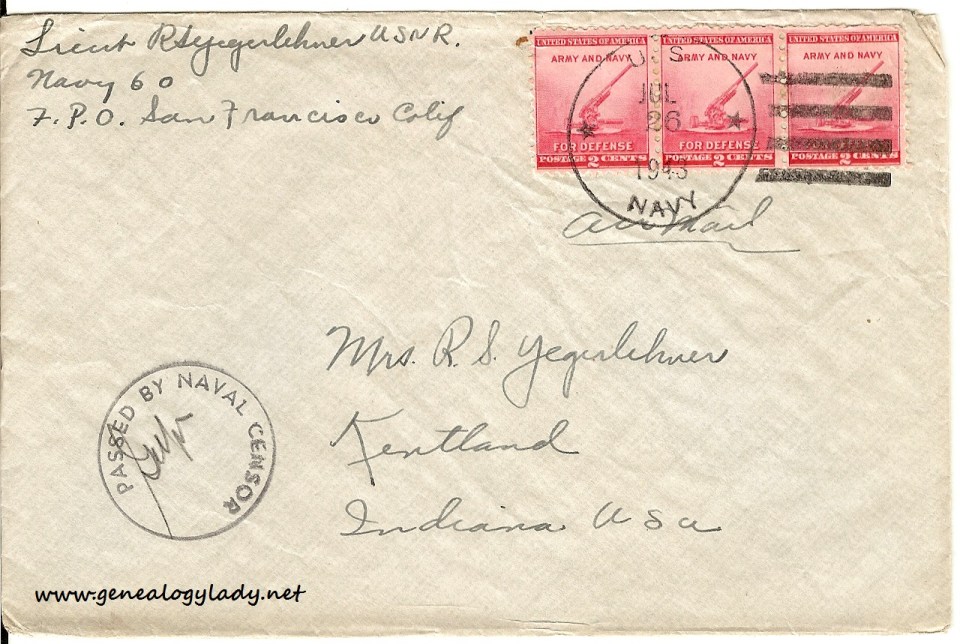 Lieut RSYegerlehner USNR.
Navy 60
F.P.O. San Francisco Calif
UNITED STATES OF AMERICA
ARMY AND NAVY
FOR DEFENSE
POSTAGE 2 CENTS
UNITED STATES OF AMERICA
ARMY AND NAVY
FOR DEFENSE
POSTAGE 2 CENTS
UNITED STATES OF AMERICA
ARMY AND NAVY
FOR DEFENSE
POSTAGE 2 CENTS
U.S.
JUL
26
1943
NAVY
Air Mail
Mrs. R. S. Yegerlehner
Kentland
Indiana USA
PASSED BY NAVAL CENSOR
www.genealogylady.net